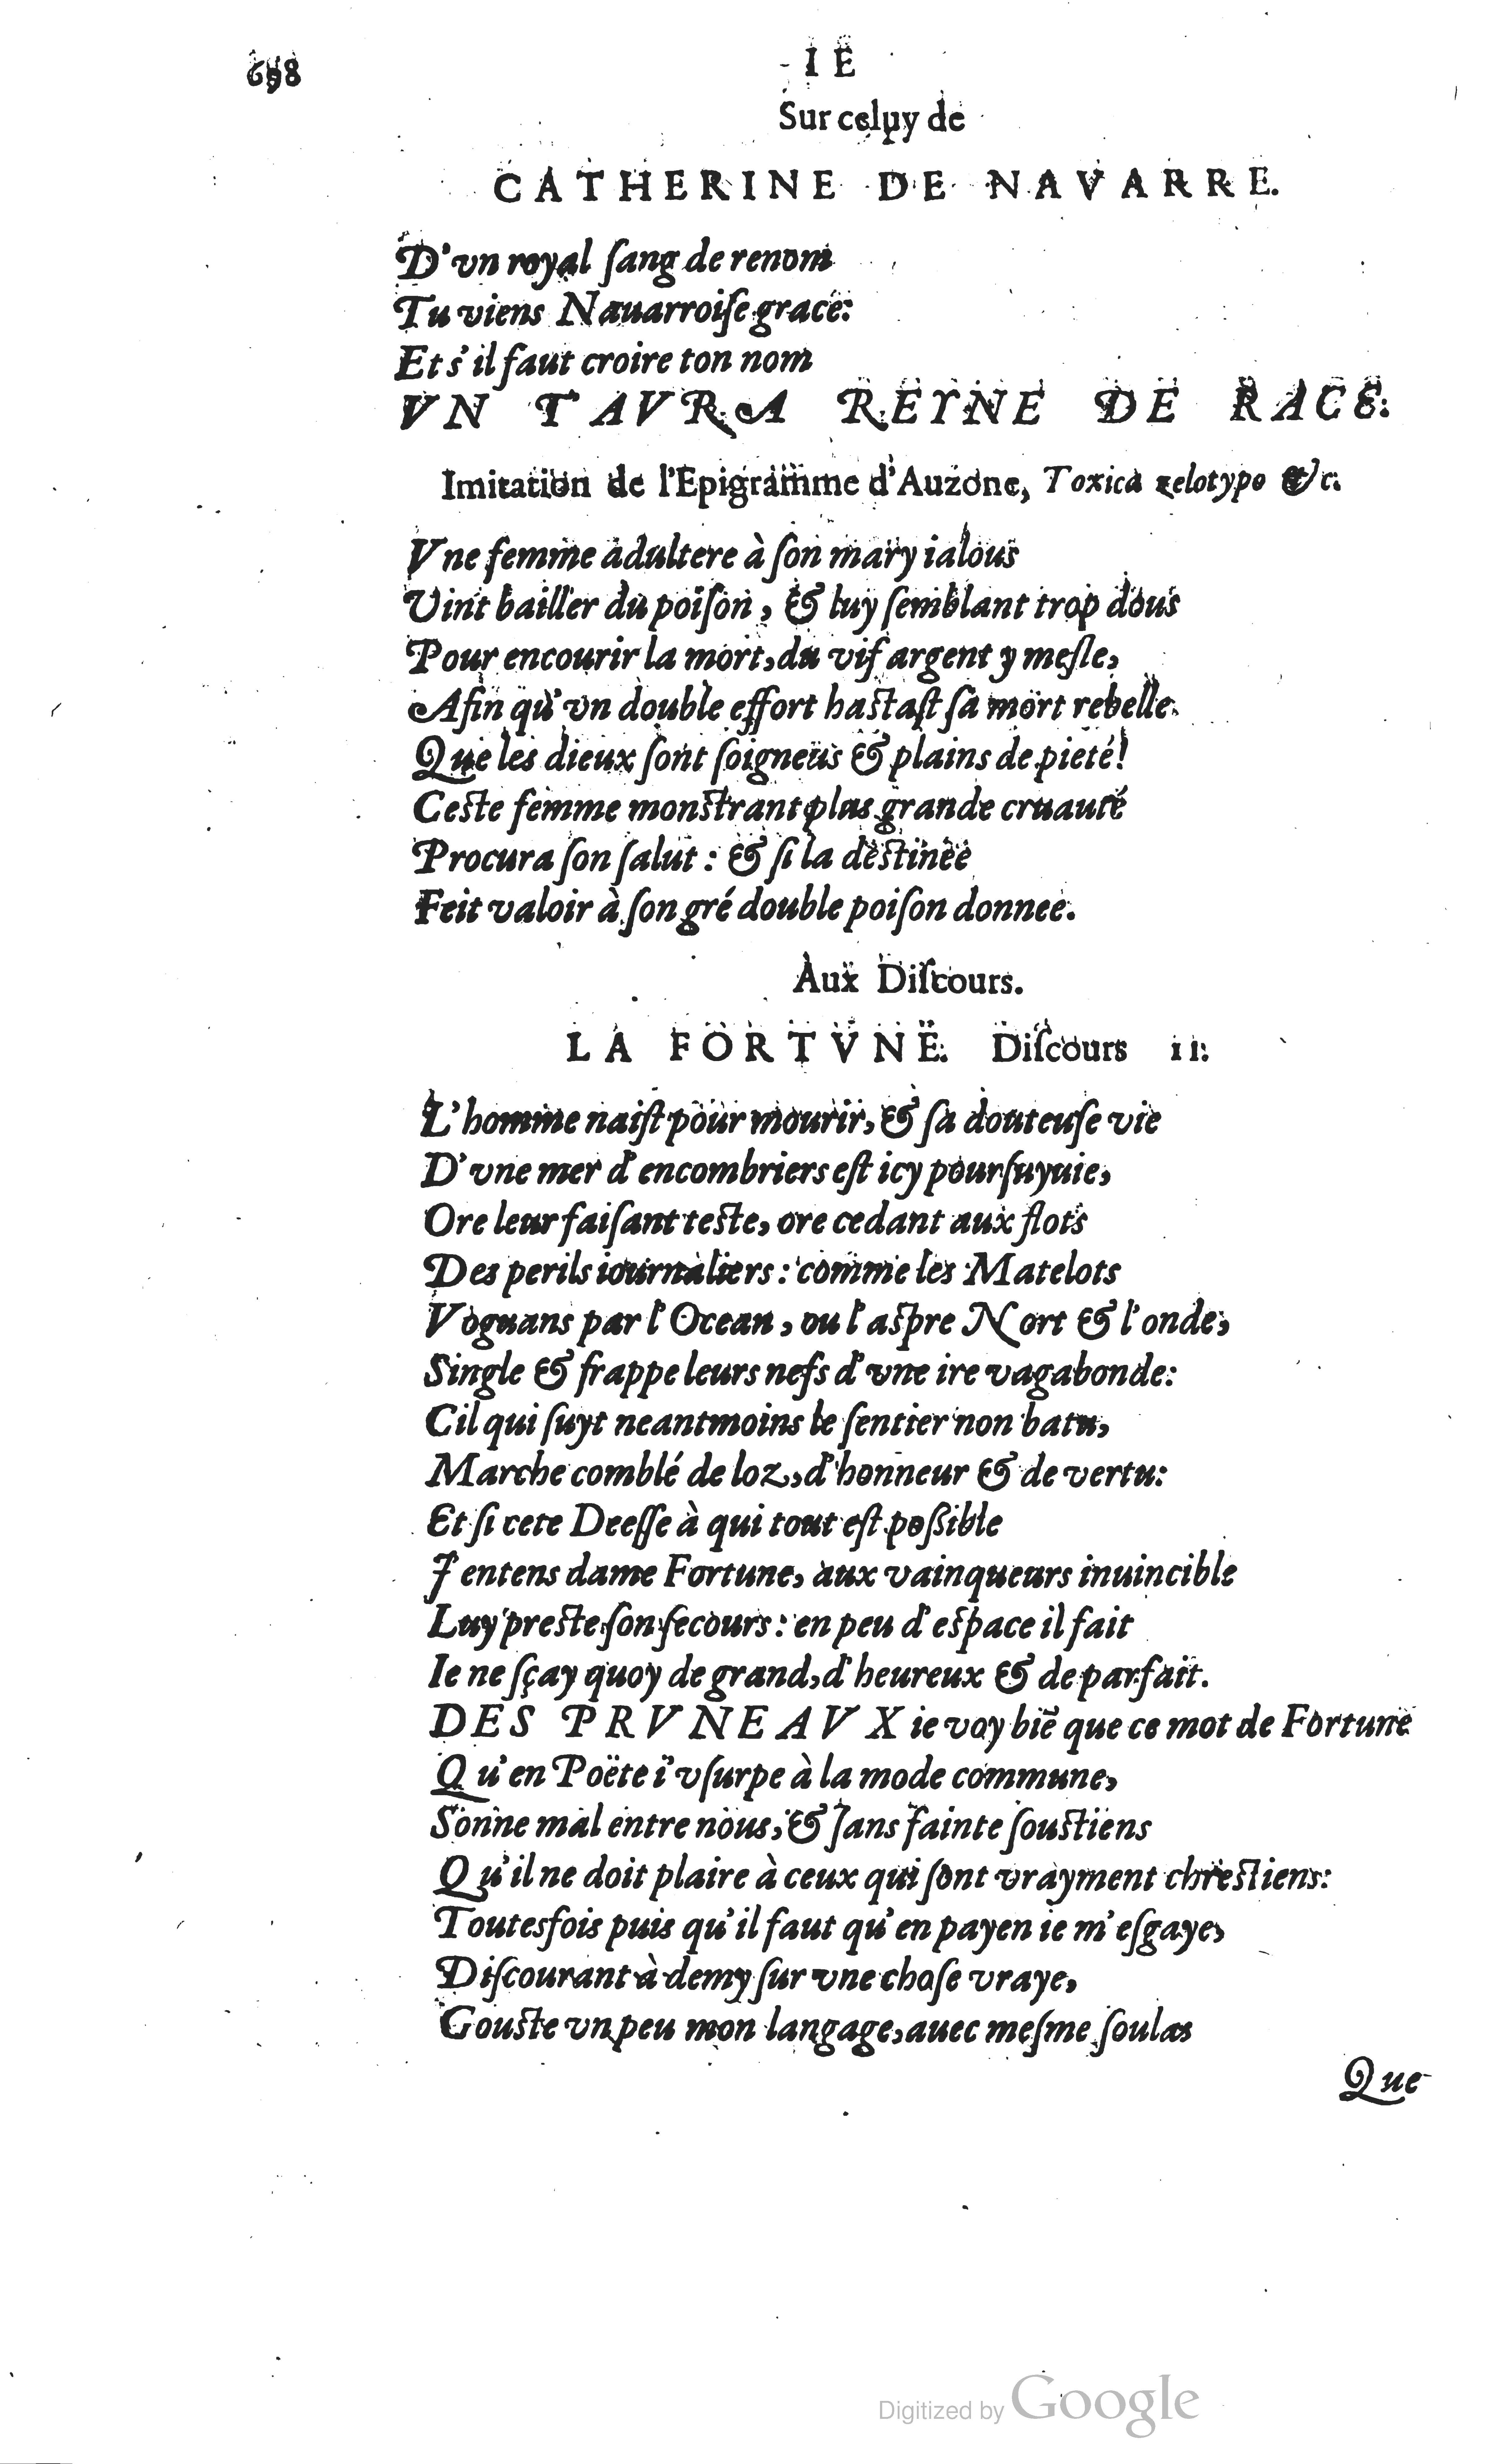 698
I E
Sur celuy de
CATHERINE DE NAVARRE.
D'vn royal ſang de renom
Tu viens Nauarroiſe grace:
Et s'il faut croire ton nom
VN T'AVRA REYNE DE RACE.
Imitation de l'Epigramme d'Auzone, Toxica zelotypo &c.
Vne femme adultere à ſon mary ialous
Vint bailler du poiſon, & luy ſemblant trop dous
Pour encourir la mort, du vif argent y meſle,
Afin qu'vn double effort haſtaſt ſa mort rebelle.
Que les dieux ſont ſoigneus & plains de pieté!
Ceſte femme monſtrant plus grande cruauté
Procura ſon ſalut: & ſi la deſtinee
Feit valoir à ſon gré double poiſon donnee.
Aux Diſcours.
LA FORTVNE. Diſcours II.
L'homme naiſt pour mourir, & ſa douteuſe vie
D'vne mer d'encombriers eſt icy pourſuyuie,
Ore leur faiſant teſte, ore cedant aux flots
Des perils iournaliers: comme les Matelots
Voguans par l'Ocean, ou l'aſpre Nort & l'onde,
Single & frappe leurs nefs d'vne ire vagabonde:
Cil qui ſuyt neantmoins le ſentier non batu,
Marche comblé de loz, d'honneur & de vertu:
Et ſi cete Deeſſe à qui tout eſt poßible
J'entens dame Fortune, aux vainqueurs inuincible
Luy preſte ſon ſecours: en peu d'eſpace il fait
Ie ne ſçay quoy de grand, d'heureux & de parfait.
DES PRVNEAVX ie voy biē que ce mot de Fortune
Qu'en Poëte i'vſurpe à la mode commune,
Sonne mal entre nous, & ſans fainte ſouſtiens
Qu'il ne doit plaire à ceux qui ſont vrayment chreſtiens:
Toutesfois puis qu'il faut qu'en payen ie m'eſgaye,
Diſcourant à demy ſur vne choſe vraye,
Gouſte vn peu mon langage, auec meſme ſoulas
Que
Digitized by Google